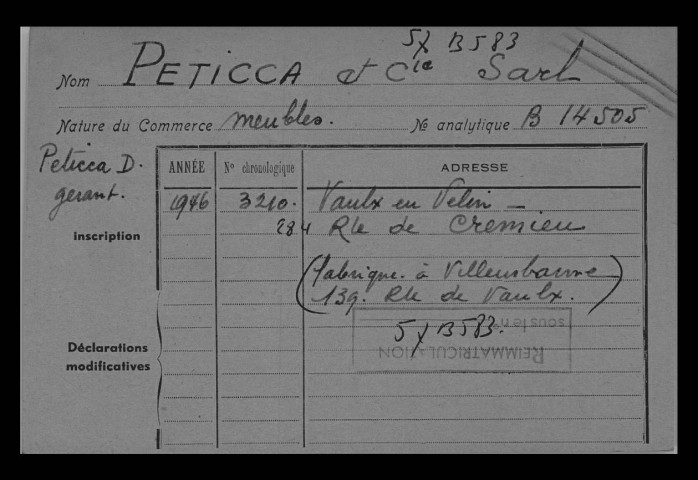 5X B583
Nom PETICCA et Cie Sarl
Nature du Commerce meubles. No analytique B 14505
Peticca D.
gerant.
ANNÉE No chronologique ADRESSE
inscription
1946 3210. Vaulx en Velin –
284 Rte de Cremieu
(fabrique à Villeurbanne
139. Rte de Vaulx.)
Déclarations
modificatives
5X B583.
sous le no
REIMMATRICULATION